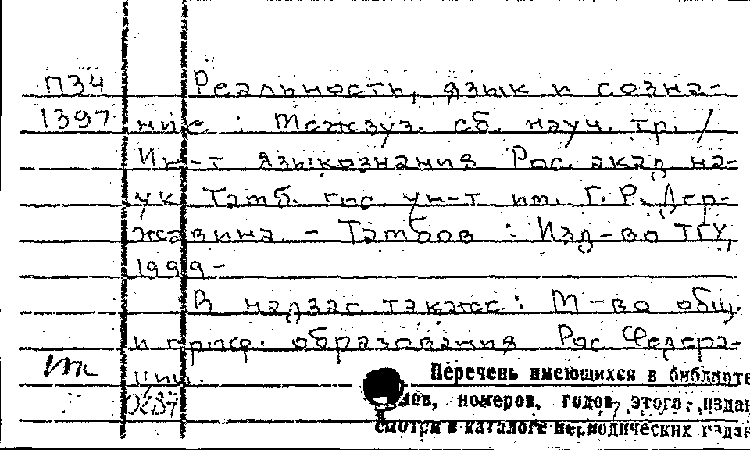 П34 Реальность, язык и созна-
1397 ние : Межвуз. сб. науч. тр. /
Ин-т языкознания Рос. акад. на-
ук, Тамб. гос. ун-т им. Г. Р. Дер-
жавина. - Тамбов : Изд-во ТГУ,
1999-
В надзаг. также: М-во общ.
и проф. образования Рос. Федера-
ции.
Перечень имеющихся в библиоте
номеров, годов этого издан
смотри в каталоге периодических издан